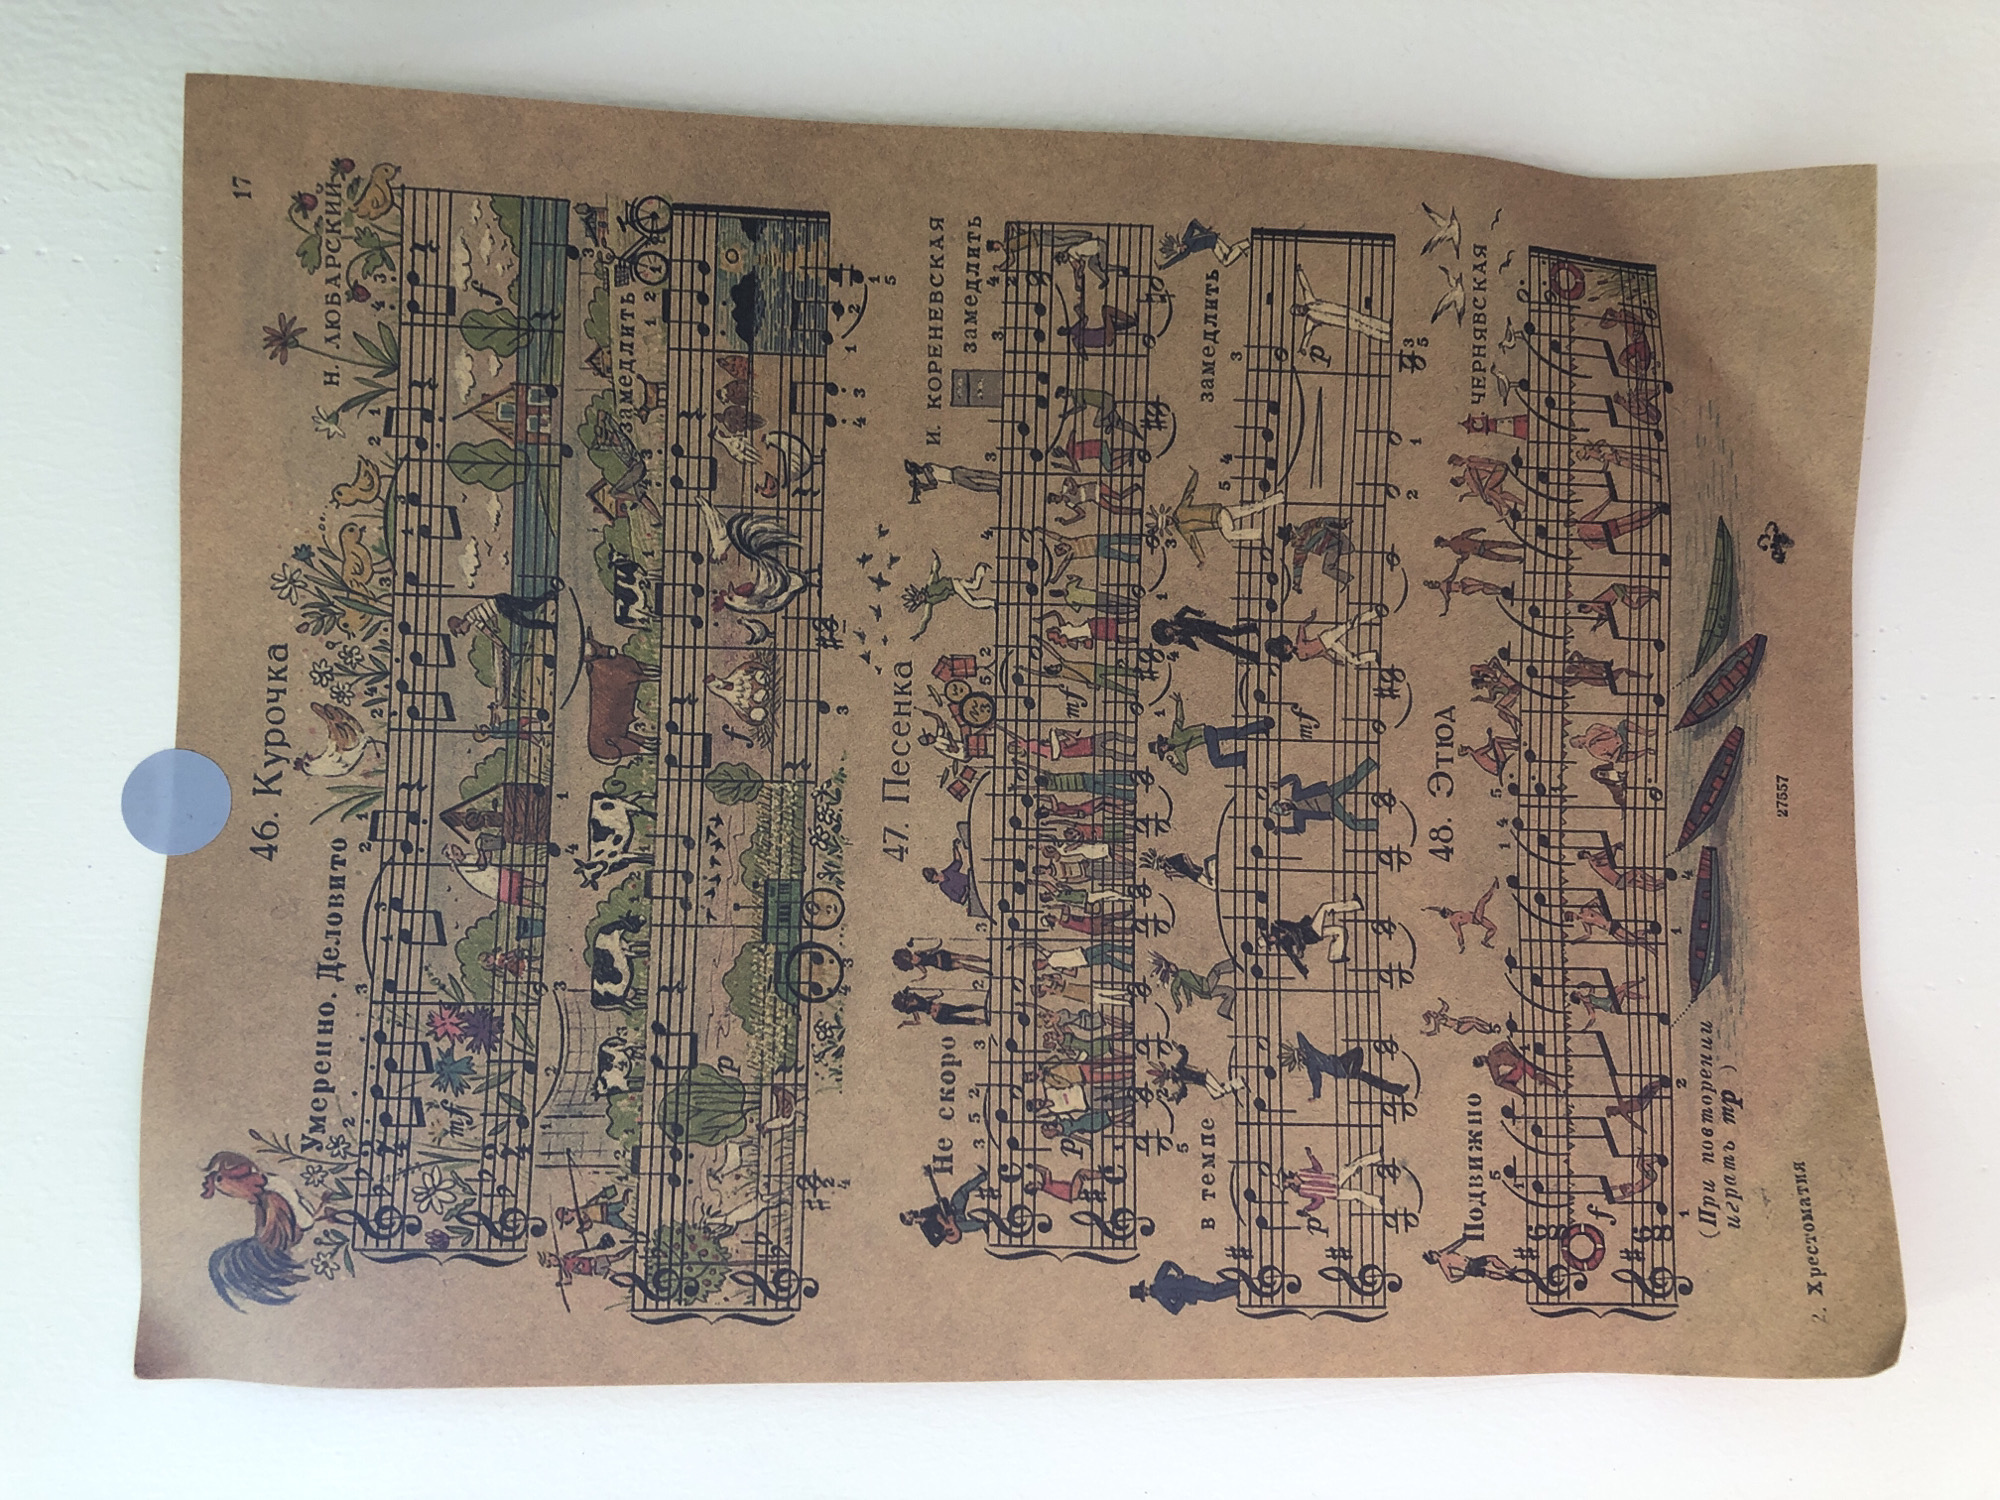 17
46. Курочка
Н. ЛЮБАРСКИЙ
Умеренно. Деловито
mf
f
замедлить
p
f
47. Песенка
И. КОРЕНЕВСКАЯ
Не скоро
замедлить
p
mf
в темпе
замедлить
p
mf
p
48. Этюд
ЧЕРНЯВСКАЯ
Подвижно
f
(При повторении
играть mp)
2. Хрестоматия
27557